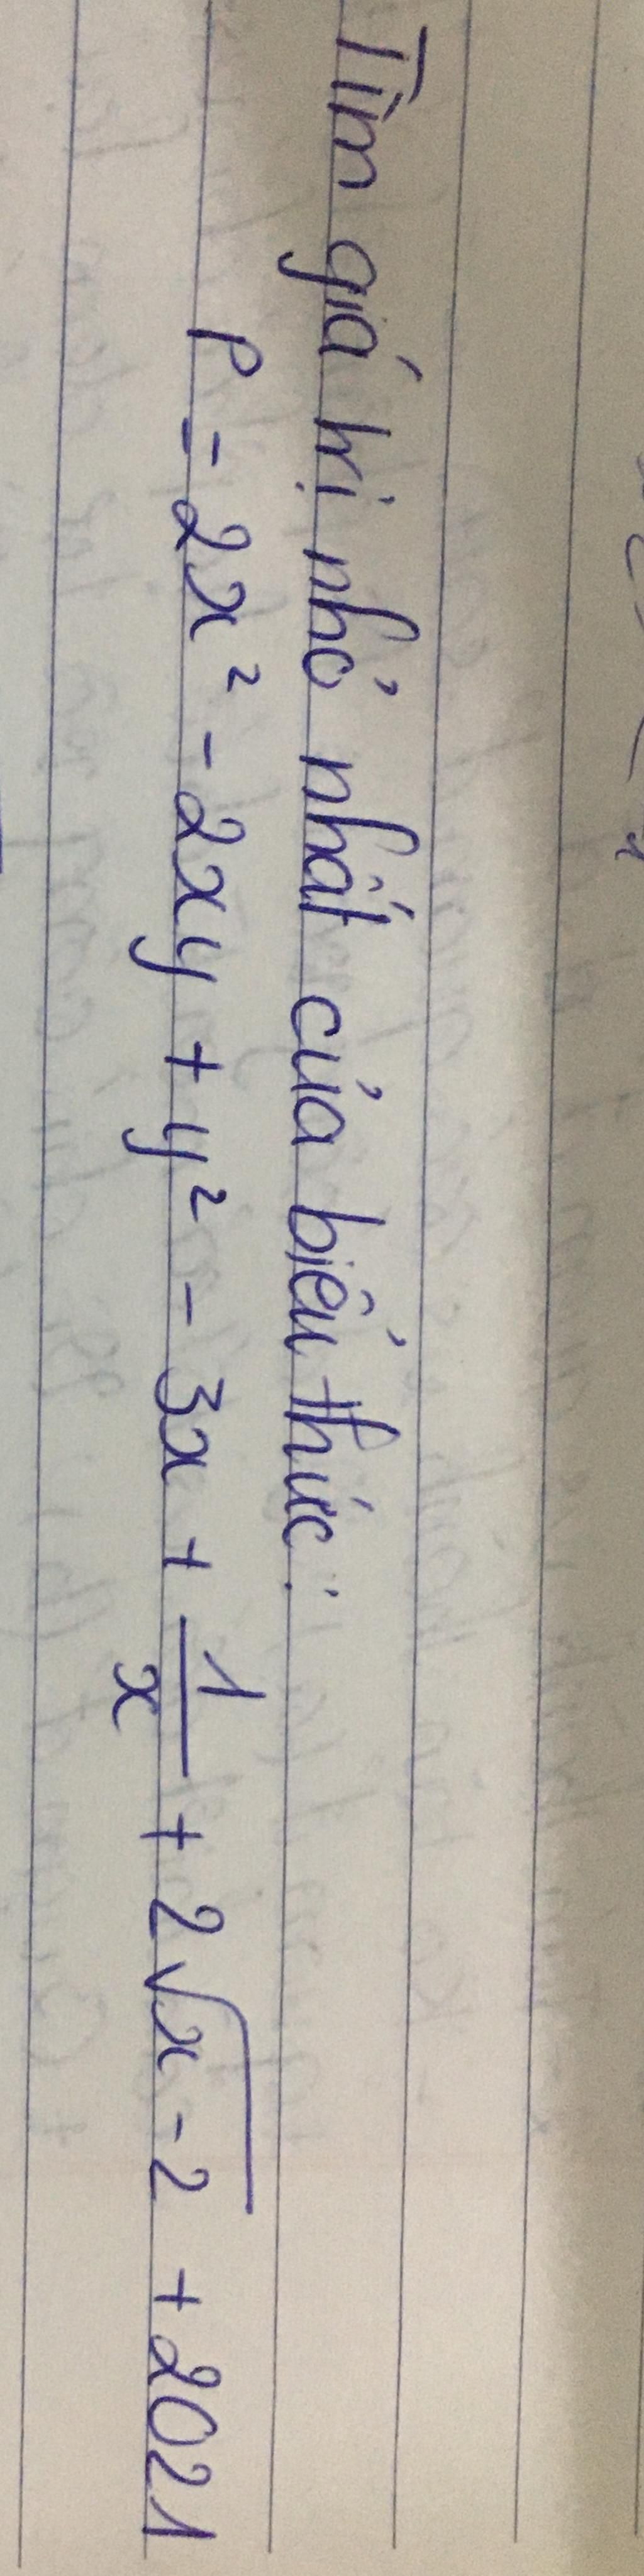 Tìm giá trị nhỏ nhất của biểu thức:
P = 2x² - 2xy + y² - 3x + 1/x + 2√(x-2) + 2021